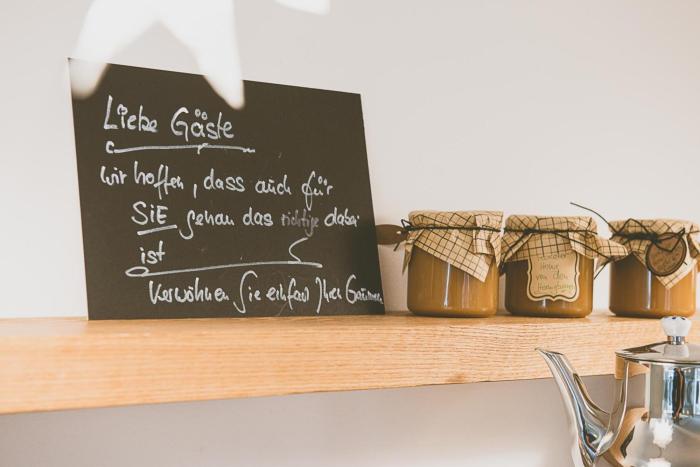 Liebe Gäste
wir hoffen, dass auch für
SIE genau das richtige dabei
ist
Verwöhnen Sie einfach Ihren Gaumen
Honig
von den